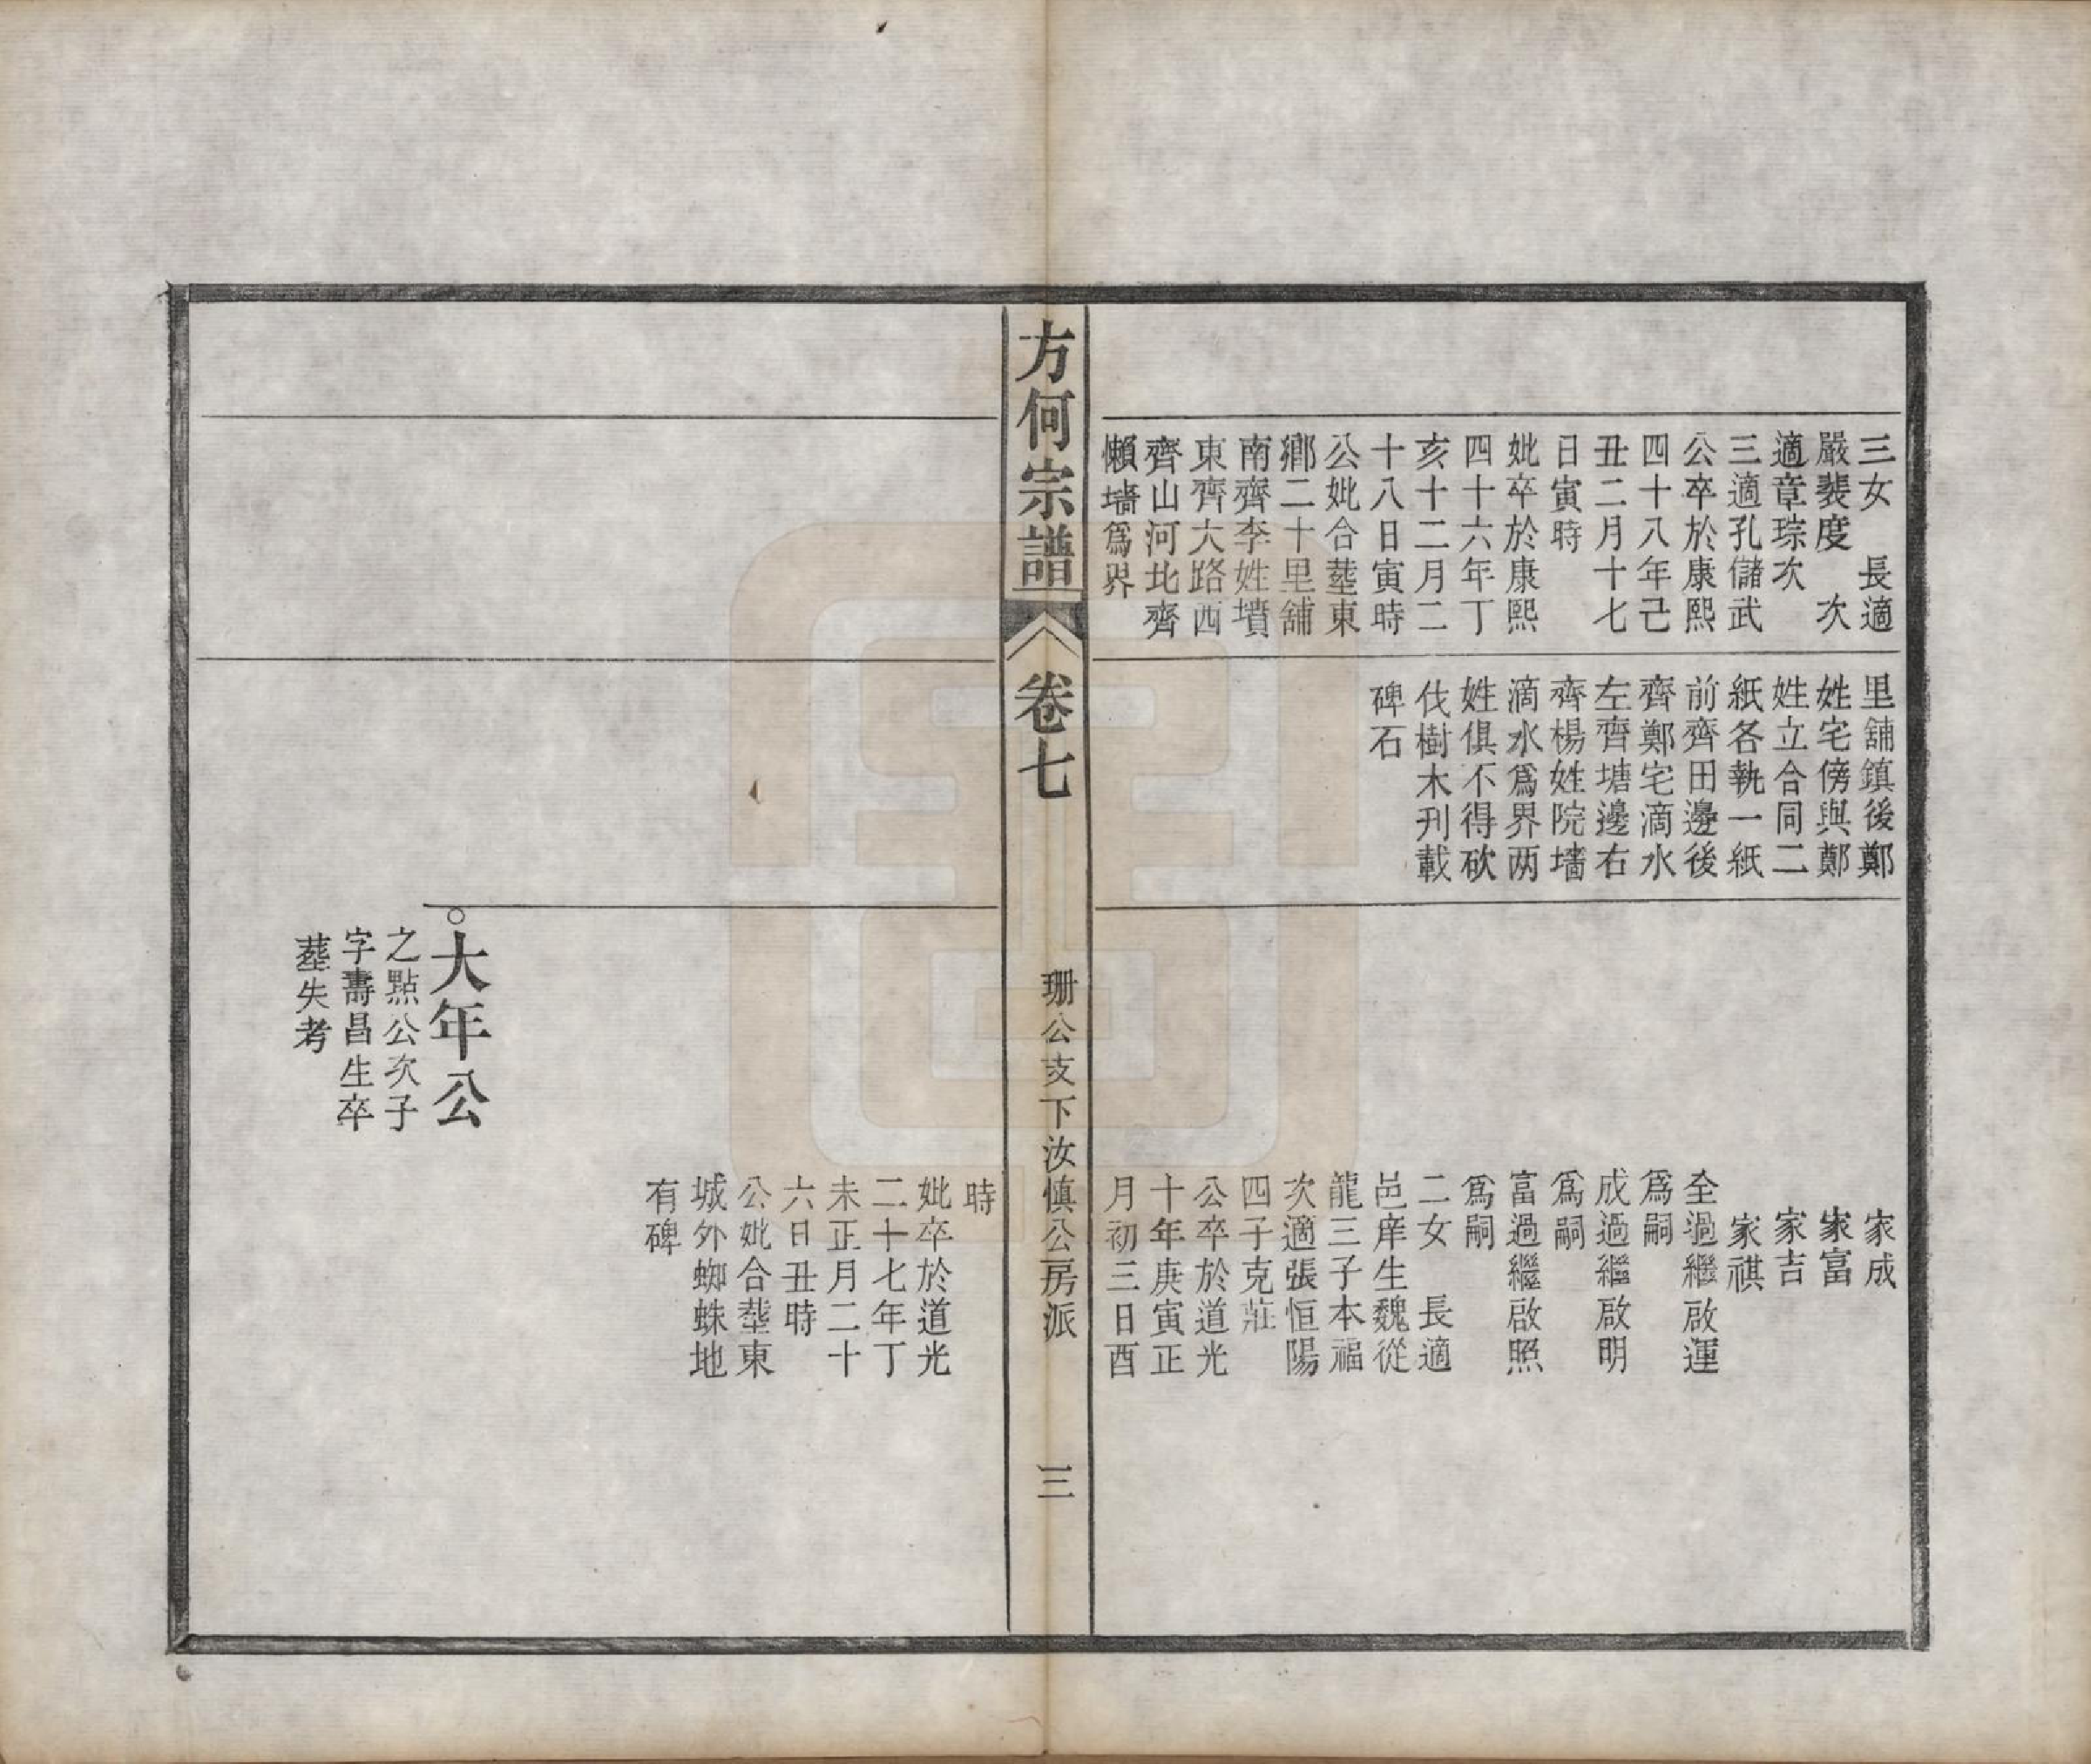 三女　長適
嚴裴度　次
適章琮次
三適孔儲武
公卒於康熙
四十八年己
丑二月十七
日寅時
妣卒於康熙
四十六年丁
亥十二月二
十八日寅時
公妣合塟東
鄉二十里舖
南齊李姓墳
東齊大路西
齊山河北齊
懶墻爲界
里舖鎮後鄭
姓宅傍與鄭
姓立合同二
紙各執一紙
前齊田邊後
齊鄭宅滴水
左齊塘邊右
齊楊姓院墻
滴水爲界两
姓俱不得砍
伐樹木刋載
碑石
家成
家富
家吉
家祺
全過繼啟運
爲嗣
成過繼啟明
爲嗣
富過繼啟照
爲嗣
二女　長適
邑庠生魏從
龍三子本福
次適張恒陽
四子克莊
公卒於道光
十年庚寅正
月初三日酉
方何宗譜
卷七
珊公支下汝慎公房派
三
時
妣卒於道光
二十七年丁
未正月二十
六日丑時
公妣合塟東
城外蜘蛛地
有碑
○大年公
之點公次子
字壽昌生卒
塟失考